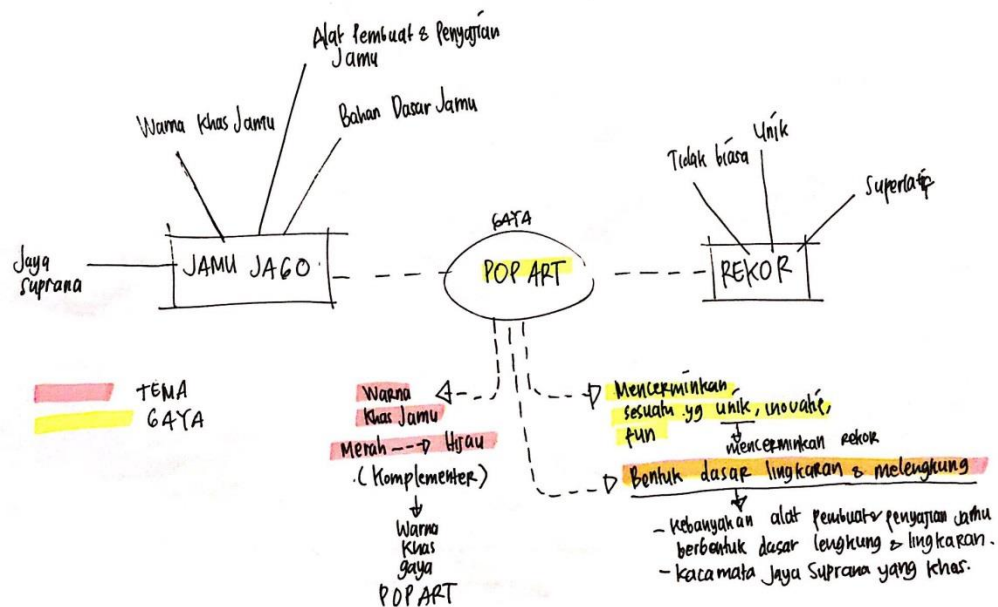 Alat Pembuat & Penyajian
Jamu
Warna Khas Jamu
Bahan Dasar Jamu
Jaya
Suprana
JAMU JAGO
GAYA
POP ART
Tidak biasa
Unik
Superlatif
REKOR
TEMA
GAYA
Warna
Khas Jamu
Merah ---> Hijau
(Komplementer)
Warna
Khas
gaya
POP ART
Mencerminkan
sesuatu yg unik, inovatif,
fun
mencerminkan rekor
Bentuk dasar lingkaran & melengkung
- Kebanyakan alat pembuat & penyajian jamu
berbentuk dasar lengkung & lingkaran.
- Kacamata Jaya Suprana yang khas.